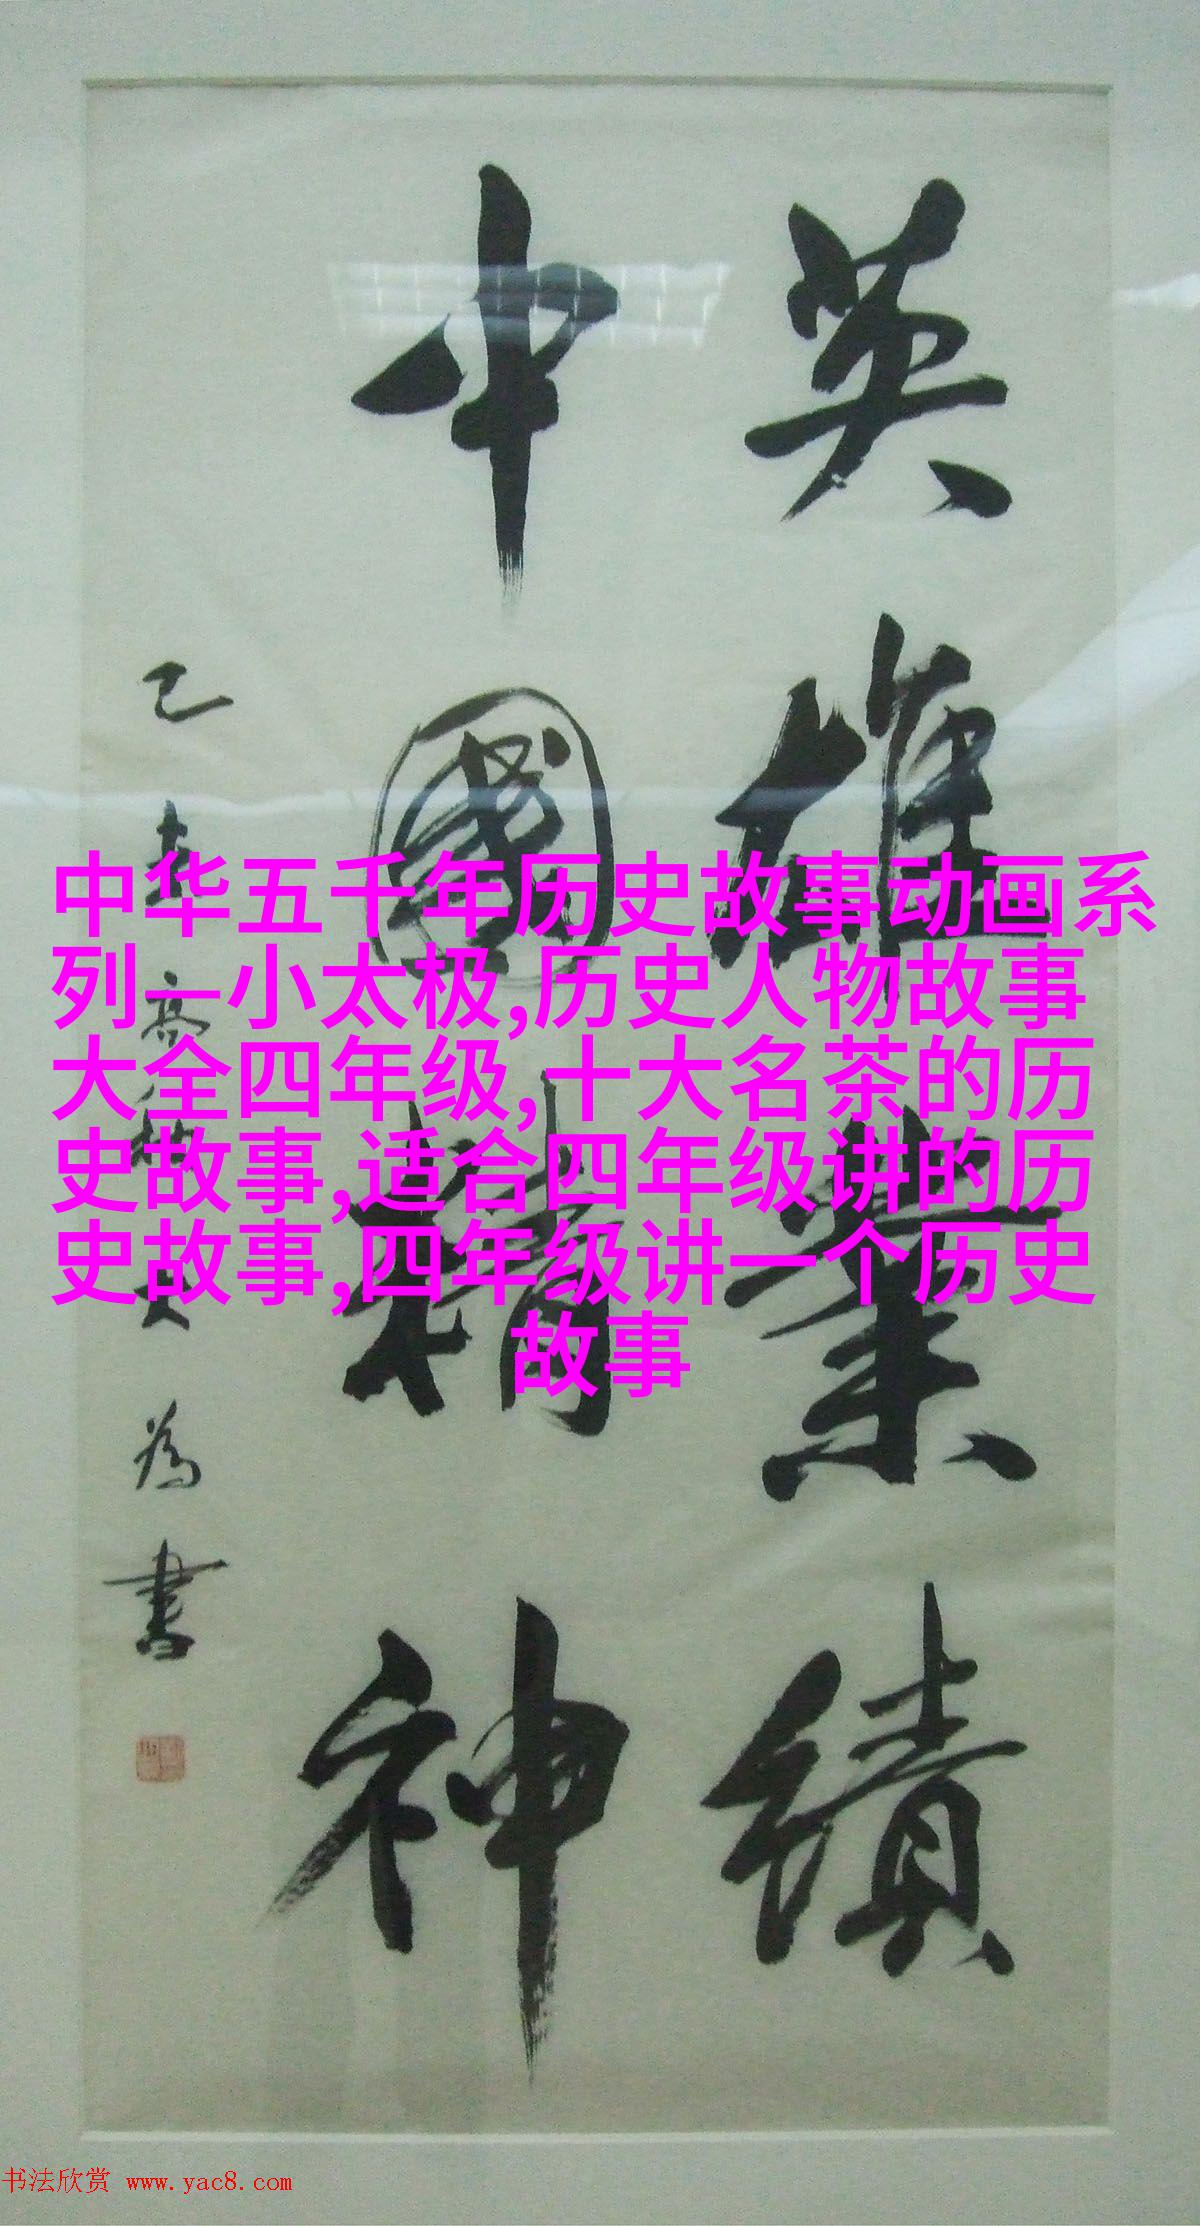 英雄業績
中國精神
中华五千年历史故事动画系
列一小太极,历史人物故事
大全四年级,十大名茶的历
史故事,适合四年级讲的历
史故事,四年级讲一个历史
故事
书法欣赏 www.yac8.com